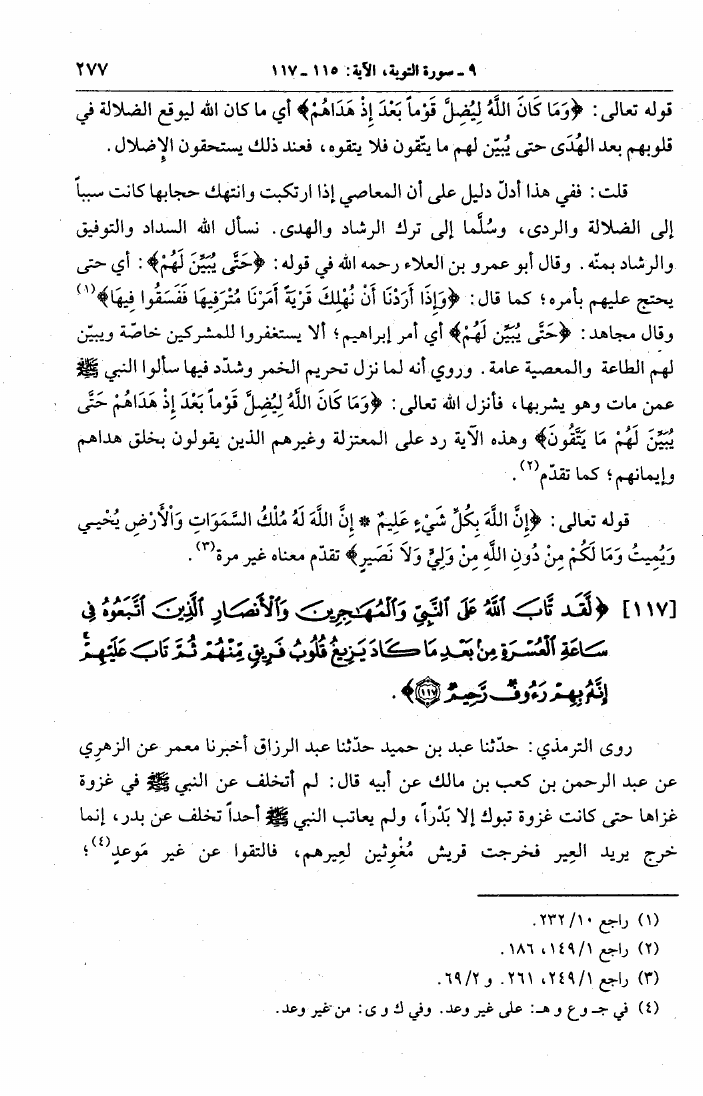 ٩ ـ سورة التوبة، الآية: ١١٥ ـ ١١٧ ٢٧٧
قوله تعالى: ﴿وَمَا كَانَ اللَّهُ لِيُضِلَّ قَوْماً بَعْدَ إِذْ هَدَاهُمْ﴾ أي ما كان الله ليوقع الضلالة في
قلوبهم بعد الهُدَى حتى يُبيّن لهم ما يتّقون فلا يتقوه، فعند ذلك يستحقون الإضلال.
قلت: ففي هذا أدلّ دليل على أن المعاصي إذا ارتكبت وانتهك حجابها كانت سبباً
إلى الضلالة والردى، وسُلَّما إلى ترك الرشاد والهدى. نسأل الله السداد والتوفيق
والرشاد بمنّه. وقال أبو عمرو بن العلاء رحمه الله في قوله: ﴿حَتَّى يُبَيِّنَ لَهُمْ﴾: أي حتى
يحتج عليهم بأمره؛ كما قال: ﴿وَإِذَا أَرَدْنَا أَنْ نُهْلِكَ قَرْيَةً أَمَرْنَا مُتْرَفِيهَا فَفَسَقُوا فِيهَا﴾(١)
وقال مجاهد: ﴿حَتَّى يُبَيِّنَ لَهُمْ﴾ أي أمر إبراهيم؛ ألا يستغفروا للمشركين خاصّة ويبيّن
لهم الطاعة والمعصية عامة. وروي أنه لما نزل تحريم الخمر وشدّد فيها سألوا النبي ﷺ
عمن مات وهو يشربها، فأنزل الله تعالى: ﴿وَمَا كَانَ اللَّهُ لِيُضِلَّ قَوْماً بَعْدَ إِذْ هَدَاهُمْ حَتَّى
يُبَيِّنَ لَهُمْ مَا يَتَّقُونَ﴾ وهذه الآية رد على المعتزلة وغيرهم الذين يقولون بخلق هداهم
وإيمانهم؛ كما تقدّم(٢).
قوله تعالى: ﴿إِنَّ اللَّهَ بِكُلِّ شَيْءٍ عَلِيمٌ * إِنَّ اللَّهَ لَهُ مُلْكُ السَّمَوَاتِ وَالْأَرْضِ يُحْيِي
وَيُمِيتُ وَمَا لَكُمْ مِنْ دُونِ اللَّهِ مِنْ وَلِيٍّ وَلَا نَصِيرٍ﴾ تقدّم معناه غير مرة(٣).
[١١٧] ﴿لَقَد تَّابَ اللَّهُ عَلَى النَّبِيِّ وَالْمُهَاجِرِينَ وَالْأَنصَارِ الَّذِينَ اتَّبَعُوهُ فِي
سَاعَةِ الْعُسْرَةِ مِنْ بَعْدِ مَا كَادَ يَزِيغُ قُلُوبُ فَرِيقٍ مِّنْهُمْ ثُمَّ تَابَ عَلَيْهِمْ
إِنَّهُ بِهِمْ رَءُوفٌ رَّحِيمٌ ۝١١٧﴾.
روى الترمذي: حدّثنا عبد بن حميد حدّثنا عبد الرزاق أخبرنا معمر عن الزهري
عن عبد الرحمن بن كعب بن مالك عن أبيه قال: لم أتخلف عن النبي ﷺ في غزوة
غزاها حتى كانت غزوة تبوك إلا بَدْراً، ولم يعاتب النبي ﷺ أحداً تخلف عن بدر، إنما
خرج يريد العِير فخرجت قريش مُغْوِثين لعِيرهم، فالتقوا عن غير مَوعدٍ(٤)؛
(١) راجع ١٠/ ٢٣٢.
(٢) راجع ١/ ١٤٩، ١٨٦.
(٣) راجع ١/ ٢٤٩، ٢٦١. و ٢/ ٦٩.
(٤) في جـ و ع و هـ: على غير وعد. وفي ك و ى: من غير وعد.